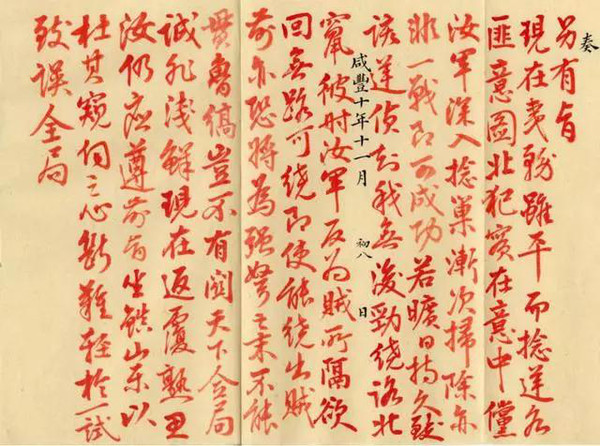 奏
另有旨
現在夷務雖平而捻逆各
匪意圖北犯實在意中儻
汝軍深入捻巢漸次掃除亦
非一戰即可成功若曠日持久
該逆偵知我無後勁繞路北
咸豐十年十一月 初八 日
竄彼时汝軍反为賊所隔欲
回無路可繞即使能繞出賊
前亦恐將為强弩之末不能
貫魯縞豈不有関天下全局
誠非淺鮮現在返覆熟思
汝仍應遵前旨坐鎮山東以
杜其窺伺之心斷難輕於一試
致誤全局